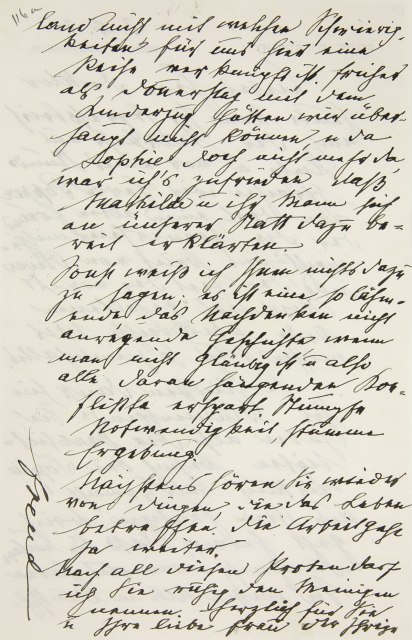 116a
kennt nicht mit welchen Schwierig-
keiten für uns hier eine
Reise verknüpft ist. Früher
als Donnerstag mit dem
Kinderzug hätten wir über-
haupt nicht können, u da
Sophie doch nicht mehr da,
war ich's zufrieden, daß
Mathilde u ihr Mann sich
an unserer Statt dazu be-
reit erklärten.
Sonst weiß ich Ihnen nichts dazu
zu sagen; es ist eine so lähm-
ende das Nachdenken nicht
anregende Geschichte wenn
man nicht gläubig ist u also
alle daran hängenden Kon-
flikte erspart. Stumpfe
Notwendigkeit, stumme
Ergebung.
Nächstens hören Sie wieder
von Dingen, die das Leben
betreffen. Die Arbeit geht
ja weiter.
Nach all diesen Proben darf
ich Sie ruhig den Meinigen
nennen. Herzlich für Sie
u Ihre liebe Frau der Ihrige
Freud